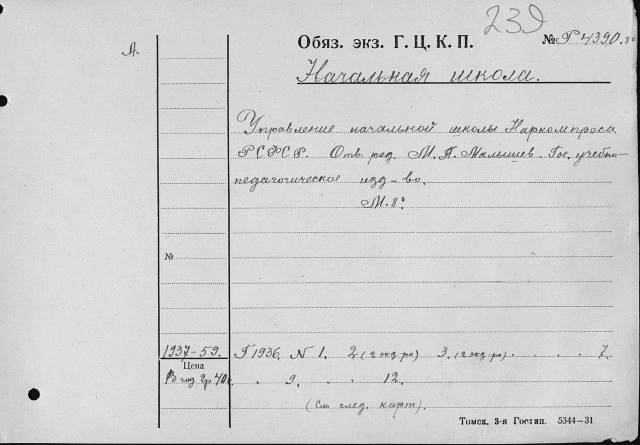 239
Обяз. экз. Г. Ц. К. П. № Г 4390. 8°
А.
Начальная школа.
Управление начальной школы Наркомпроса
РСФСР. Отв. ред. М. П. Малышев. Гос. учебно-
педагогическое изд-во.
М. 8°
№
1937-59. Г 1936, N 1. 2 (2 экз. ра) 3. (2 экз. ра) . . . . 7.
Цена
В год 2р. 40к. . 9. . . 12.
(См след. карт).
Томск, 3-я Гостип. 5344—31